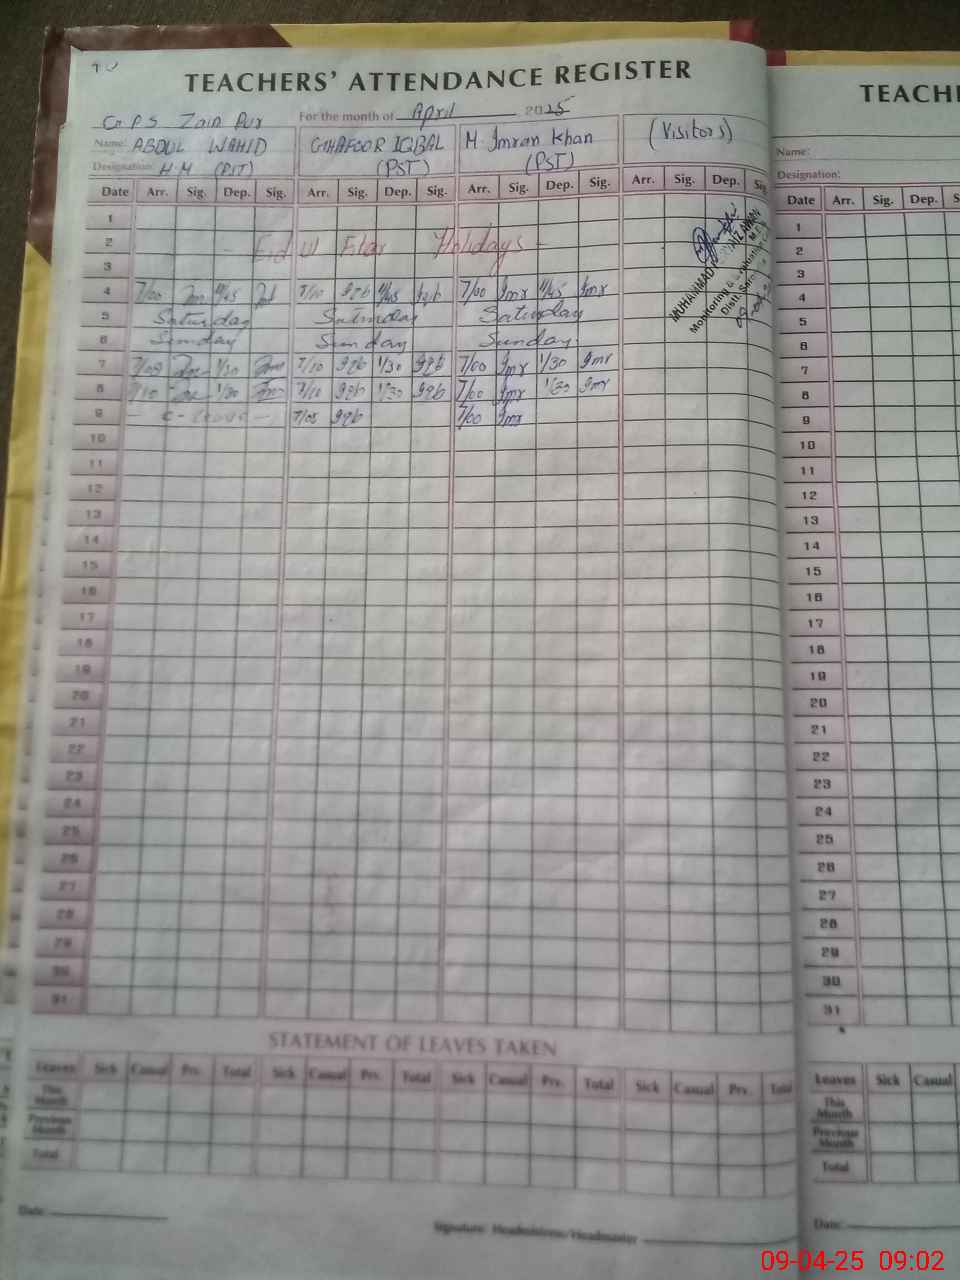 TEACHERS' ATTENDANCE REGISTER
For the month of April 2025
GPS Zain Pur
Name: ABDUL WAHID GHAFOOR IQBAL M Imran Khan (Visitors)
Designation: H.M (PST) (PST) (PST)
Date Arr. Sig. Dep. Sig. Arr. Sig. Dep. Sig. Arr. Sig. Dep. Sig. Arr. Sig. Dep. Sig
1
2 Eid Ul Fitar Holidays
3
4 7/00 11/45 7/10 11/45 7/00 Imr 11/45 Imr
5 Saturday Saturday Saturday
6 Sunday Sunday Sunday
7 7/00 1/30 7/10 Iqb 1/30 Iqb 7/00 Imr 1/30 Imr
8 7/10 1/30 7/10 Iqb 1/30 Iqb 7/00 Imr 1/30 Imr
9 - C - Leave - 7/05 Iqb 7/00 Imr
10
11
12
13
14
15
16
17
18
19
20
21
22
23
24
25
26
27
28
29
30
31
MUHAMMAD
Monitoring & Evaluation
Distt.
STATEMENT OF LEAVES TAKEN
Leaves Sick Casual Prv. Total Sick Casual Prv. Total Sick Casual Prv. Total Sick Casual Prv. Total
This Month
Previous Month
Total
Date:
Signature: Headmistress/Headmaster
TEACHE
Name:
Designation:
Date Arr. Sig. Dep. S
1
2
3
4
5
6
7
8
9
10
11
12
13
14
15
16
17
18
19
20
21
22
23
24
25
26
27
28
29
30
31
Leaves Sick Casual
This Month
Previous Month
Total
Date:
09-04-25 09:02